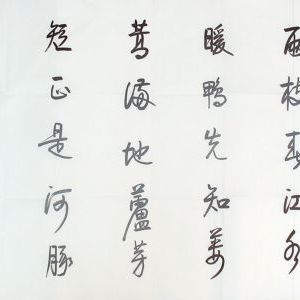 兩枝春江水
暖鴨先知蔞
蒿滿地蘆芽
短正是河豚